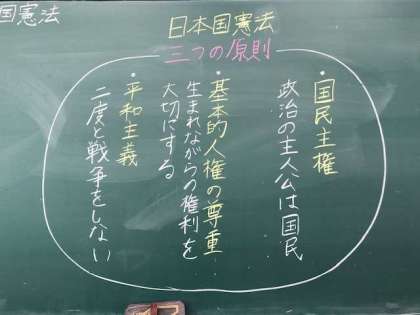 国憲法
日本国憲法
三つの原則
・国民主権
政治の主人公は国民
・基本的人権の尊重
生まれながらの権利を
大切にする
・平和主義
二度と戦争をしない